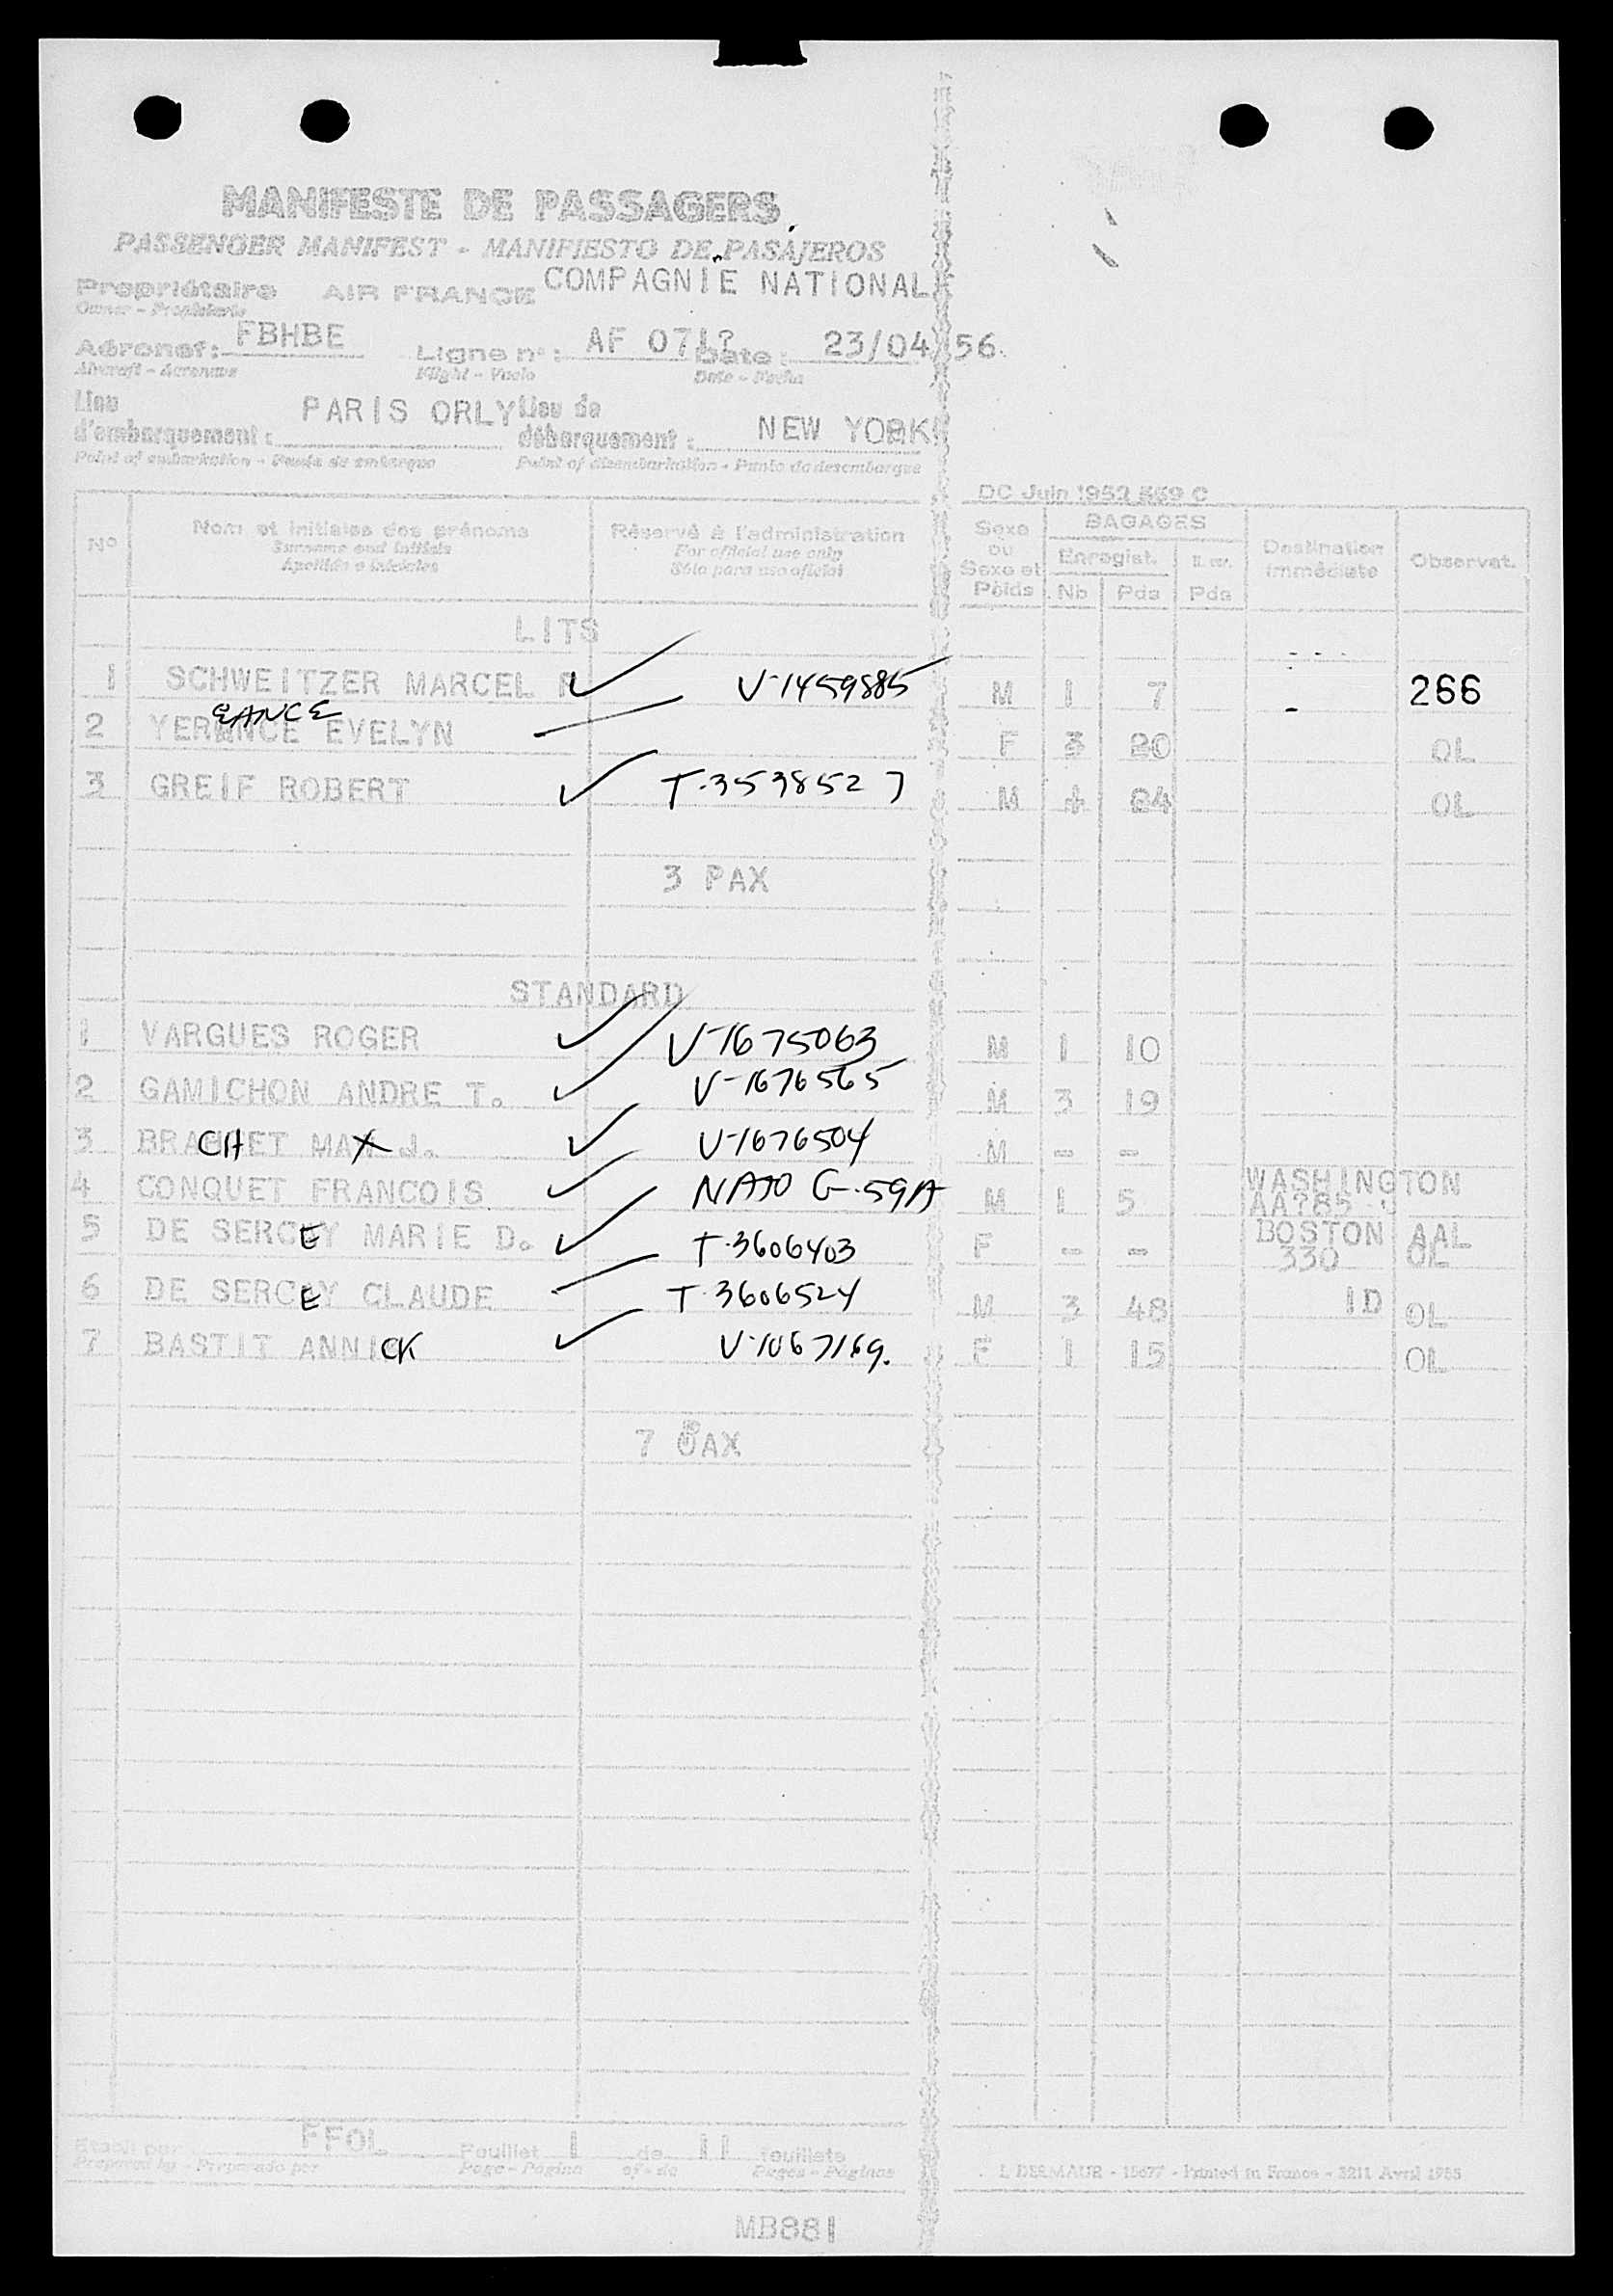 MANIFESTE DE PASSAGERS
PASSENGER MANIFEST - MANIFIESTO DE PASAJEROS
Propriétaire AIR FRANCE COMPAGNIE NATIONALE
Owner - Propietario
Aéronef : FBHBE Ligne n° : AF 071? Date : 23/04/56
Aircraft - Aeronave Flight - Vuelo Date - Fecha
Lieu d'embarquement : PARIS ORLY Lieu de débarquement : NEW YORK
Point of embarkation - Punto de embarque Point of disembarkation - Punto de desembarque
DC Juin 1952 559 C
N° Nom et initiales des prénoms Réservé à l'administration Sexe ou Sexe et Poids BAGAGES Destination immédiate Observat.
Surname and initials For official use only Enregist.
Apellido e iniciales Sóla para uso oficial Nb Pds Pds
LITS
1 SCHWEITZER MARCEL V-1459885 M 1 7 266
EANCE
2 YERENCE EVELYN F 3 20 OL
3 GREIF ROBERT T-3538527 M 24 OL
3 PAX
STANDARD
1 VARGUES ROGER V-1675063 M 1 10
2 GAMICHON ANDRE T. V-1676565 M 3 19
3 BRACHET MAX J. V-1676504 M - -
4 CONQUET FRANCOIS NATO G-59A M 1 5 WASHINGTON
AA785
5 DE SERCEY MARIE D. T-3606403 F - - BOSTON AAL
330 OL
6 DE SERCEY CLAUDE T-3606524 M 3 48 ID OL
7 BASTIT ANNICK V-1067169. F 1 15 OL
7 PAX
Etabli par FFOL Feuillet 1 de 11 feuillets
Prepared by - Preparado por Page - Pagina of - de Pages - Paginas
Printed in France - 3211 Avril 1955
MB881